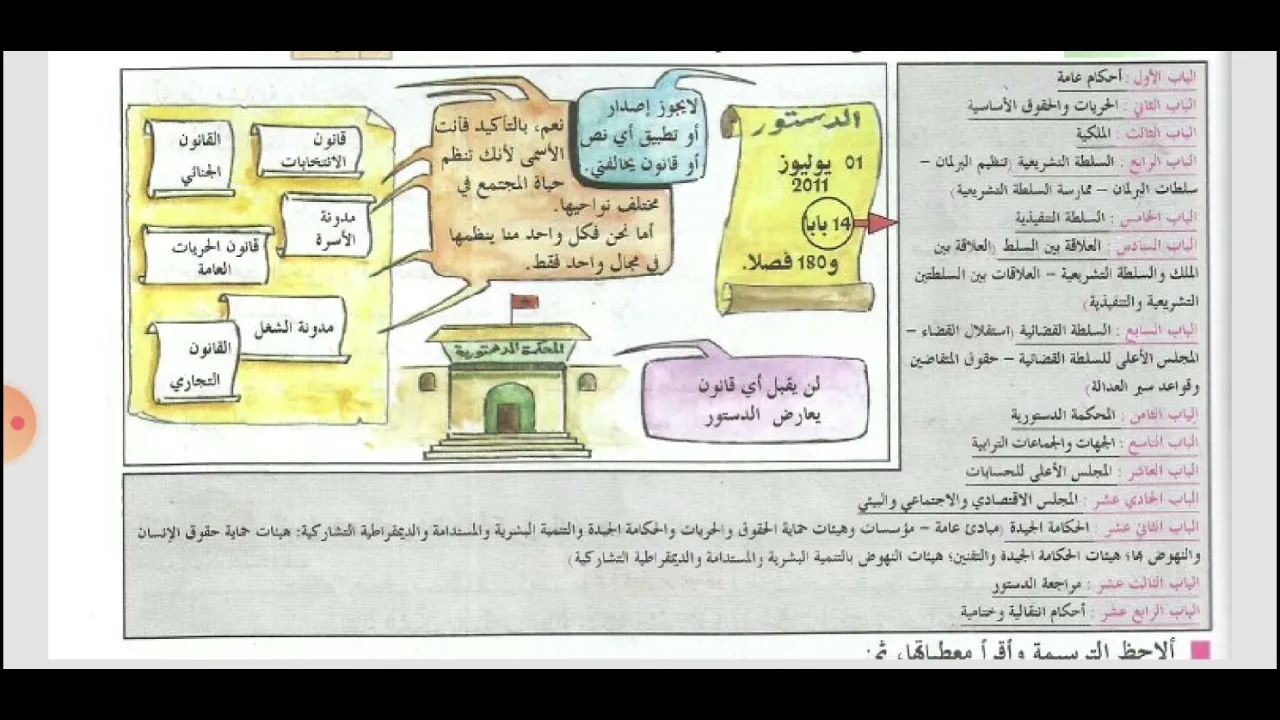 الباب الأول : أحكام عامة
الباب الثاني : الحريات والحقوق الأساسية
الباب الثالث : الملكية
الباب الرابع : السلطة التشريعية (تنظيم البرلمان –
سلطات البرلمان – ممارسة السلطة التشريعية)
الباب الخامس : السلطة التنفيذية
الباب السادس : العلاقة بين السلط (العلاقة بين
الملك والسلطة التشريعية – العلاقات بين السلطتين
التشريعية والتنفيذية)
الباب السابع : السلطة القضائية (استقلال القضاء –
المجلس الأعلى للسلطة القضائية – حقوق المتقاضين
وقواعد سير العدالة)
الباب الثامن : المحكمة الدستورية
الباب التاسع : الجهات والجماعات الترابية
الباب العاشر : المجلس الأعلى للحسابات
الباب الحادي عشر : المجلس الاقتصادي والاجتماعي والبيئي
الباب الثاني عشر : الحكامة الجيدة (مبادئ عامة – مؤسسات وهيئات حماية الحقوق والحريات والحكامة الجيدة والتنمية البشرية والمستدامة والديمقراطية التشاركية: هيئات حماية حقوق الإنسان
والنهوض بها؛ هيئات الحكامة الجيدة والتقنين؛ هيئات النهوض بالتنمية البشرية والمستدامة والديمقراطية التشاركية)
الباب الثالث عشر : مراجعة الدستور
الباب الرابع عشر : أحكام انتقالية وختامية
الدستور
01 يوليوز
2011
14 بابا
و180 فصلا.
لايجوز إصدار
أو تطبيق أي نص
أو قانون يخالفني.
نعم، بالتأكيد فأنت
الأسمى لأنك تنظم
حياة المجتمع في
مختلف نواحيها.
أما نحن فكل واحد منا ينظمها
في مجال واحد فقط.
قانون
الانتخابات
القانون
الجنائي
مدونة
الأسرة
قانون الحريات
العامة
مدونة الشغل
القانون
التجاري
المحكمة الدستورية
لن يقبل أي قانون
يعارض الدستور
ألاحظ الترسيمة وأقرأ معطياتها، ثم: